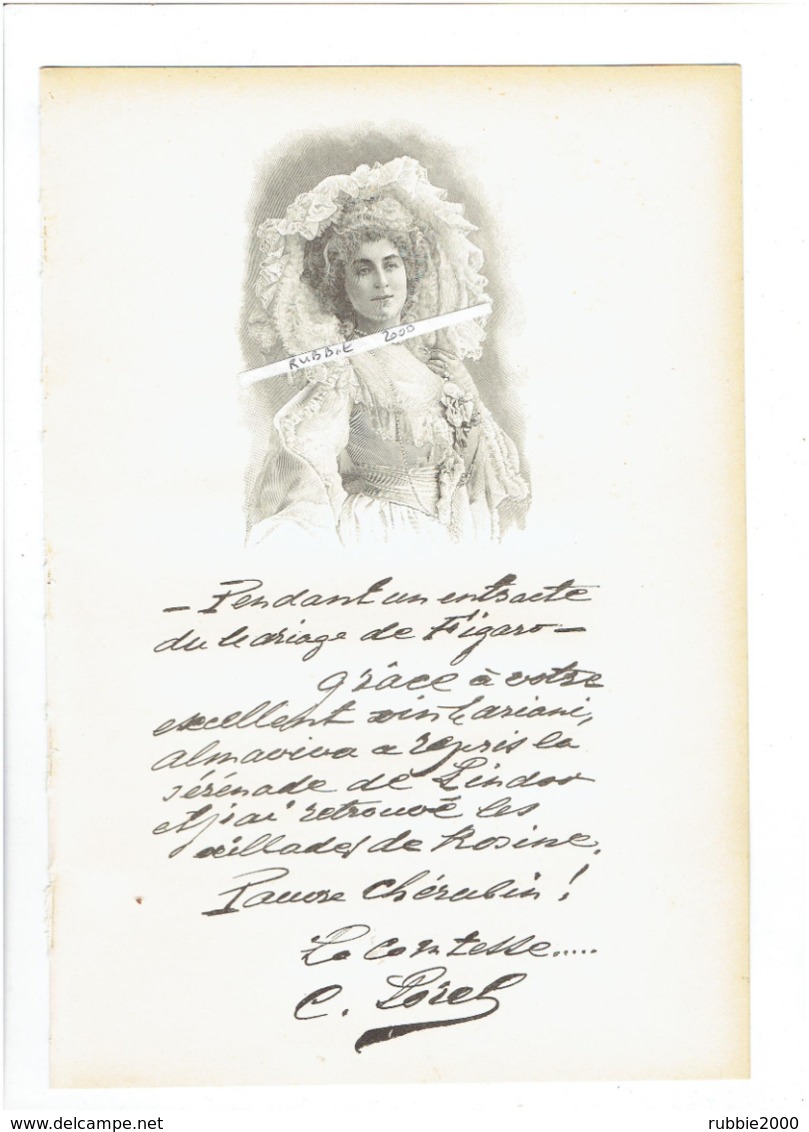 RUBBIE 2000
— Pendant un entracte
du Mariage de Figaro —
grâce à votre
excellent vin Mariani,
Almaviva a repris la
sérénade de Lindor
et j'ai retrouvé les
œillades de Rosine.
Pauvre Chérubin !
La Comtesse.....
C. Sorel
delcampe.net
rubbie2000